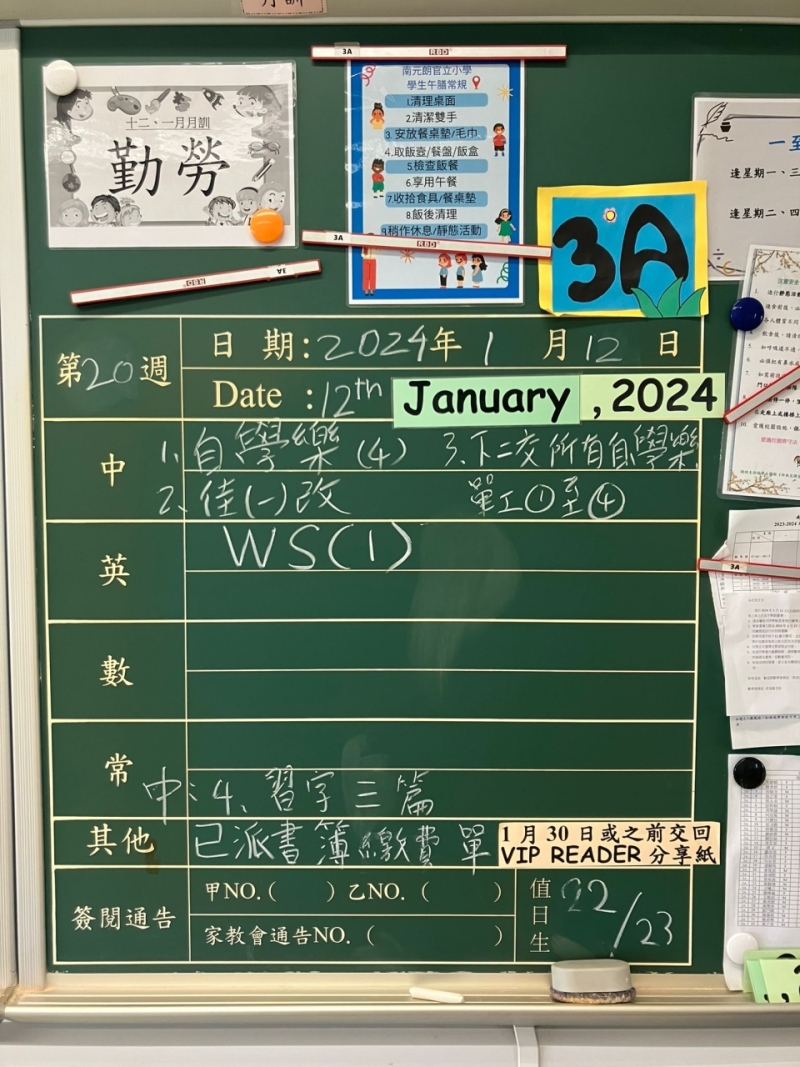 月訓
3A RBD
十二、一月月訓
勤勞
南元朗官立小學
學生午膳常規
1.清理桌面
2.清潔雙手
3.安放餐桌墊/毛巾
4.取飯壺/餐盤/飯盒
5.檢查飯餐
6.享用午餐
7.收拾食具/餐桌墊
8.飯後清理
9.稍作休息/靜態活動
3A RBD
3A RBD
3A
逢星期一、三
逢星期二、四
第20週
日 期:2024年 1 月 12 日
Date :12th January , 2024
中
1. 自學樂 (4) 3.下二交所有自學樂
2. 佳(一)改 單工①至④
英
WS(1)
數
常
中: 4、習字三篇
其他
已派書簿繳費單
1 月 30 日或之前交回
VIP READER 分享紙
簽閱通告
甲NO.( ) 乙NO. ( )
家教會通告NO. ( )
值日生
22/23
3A